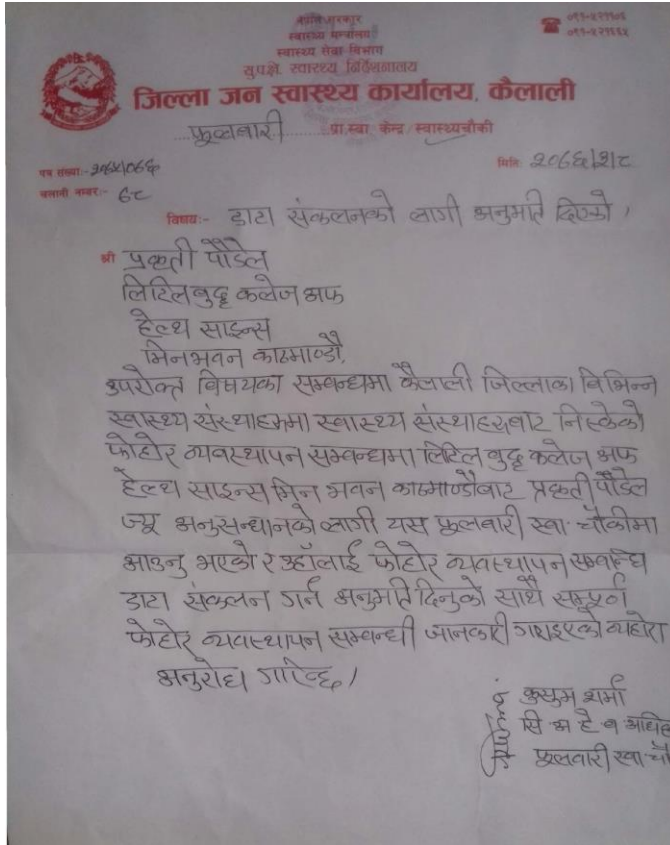 नेपाल सरकार
स्वास्थ्य मन्त्रालय
स्वास्थ्य सेवा विभाग
सु.प.क्षे. स्वास्थ्य निर्देशनालय
जिल्ला जन स्वास्थ्य कार्यालय, कैलाली
☎ ०९१-५२११०६
०९१-५२१६६५
फूलबारी प्रा.स्वा. केन्द्र/स्वास्थ्यचौकी
पत्र संख्या:- २०६५/०६६
चलानी नम्बर:- ६८
मिति: २०६६/२/८
विषय:- डाटा संकलनको लागी अनुमति दिएको ।
श्री प्रकृती पौडेल
लिटिल बुद्ध कलेज अफ
हेल्थ साइन्स
मिनभवन काठमाण्डौ,
उपरोक्त विषयका सम्बन्धमा कैलाली जिल्लाका विभिन्न
स्वास्थ्य संस्थाहरूमा स्वास्थ्य संस्थाहरुबाट निस्केको
फोहोर व्यवस्थापन सम्बन्धमा लिटिल बुद्ध कलेज अफ
हेल्थ साइन्स मिन भवन काठमाण्डौबाट प्रकृती पौडेल
ज्यू अनुसन्धानको लागी यस फूलबारी स्वा. चौकीमा
आउनु भएको र उहाँलाई फोहोर व्यवस्थापन सम्बन्धि
डाटा संकलन गर्न अनुमति दिनुको साथै सम्पूर्ण
फोहोर व्यवस्थापन सम्बन्धी जानकारी गराइएको व्यहोरा
अनुरोध गरिन्छ ।
कुसुम शर्मा
सि.अ.हे.व अधि
फूलबारी स्वा.चौ